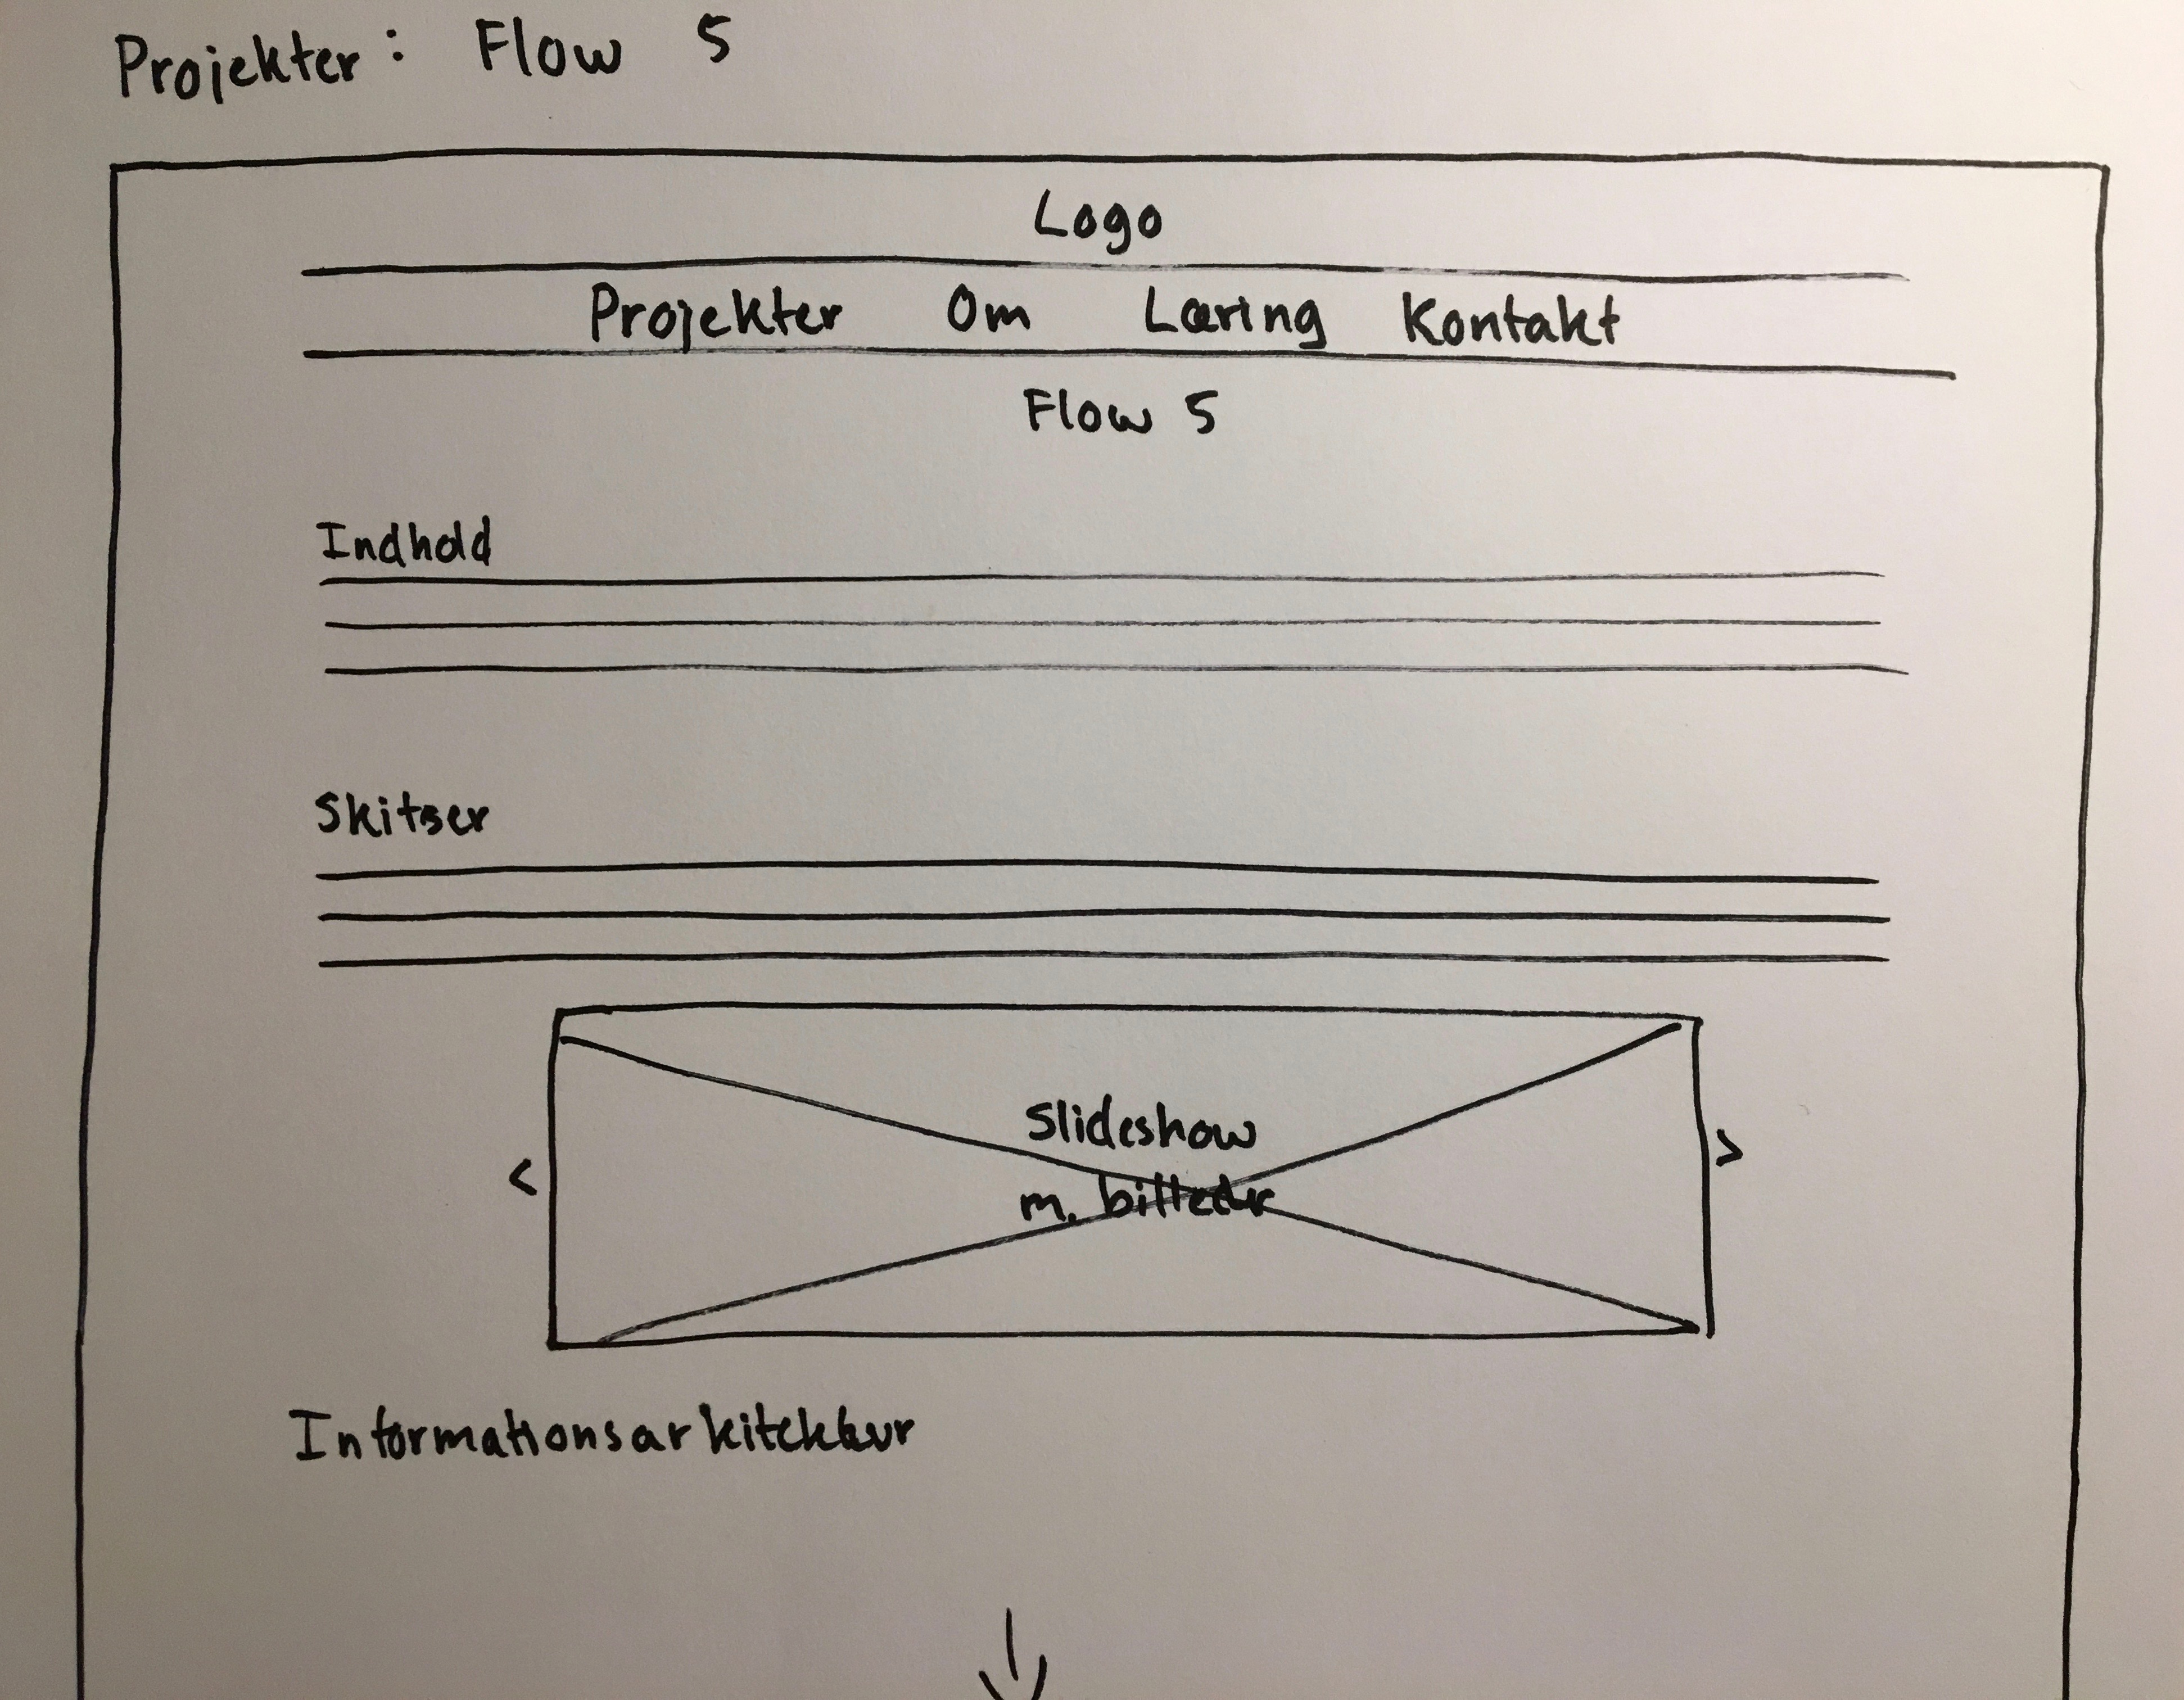 Projekter: Flow 5
Logo
Projekter Om Læring Kontakt
Flow 5
Indhold
Skitser
Slideshow
< >
m. billeder
Informationsarkitektur